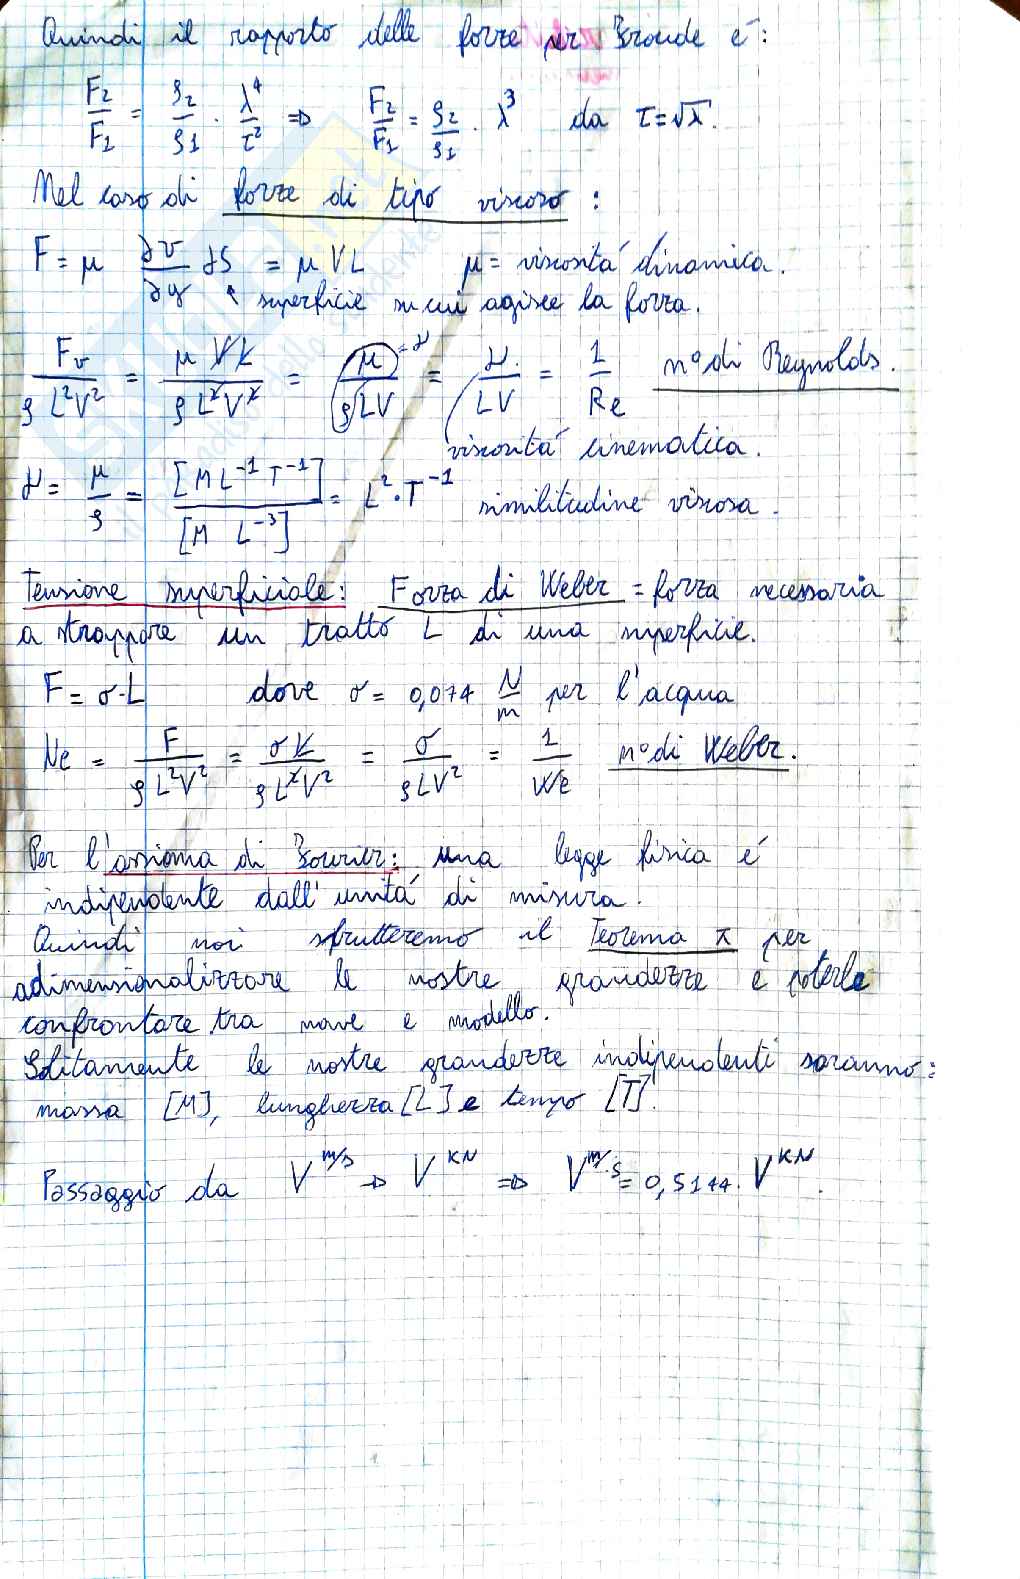 Quindi il rapporto delle forze per Froude é:
F2/F1 = ρ2/ρ1 · λ^4/τ^2 ⇒ F2/F1 = ρ2/ρ1 · λ^3 da τ=√λ.
Nel caso di forze di tipo viscoso :
F = μ ∂v/∂y dS = μ V L μ = viscositá dinamica.
superficie su cui agisce la forza.
Fv/(ρ L²V²) = μ V L/(ρ L²V²) = μ/(ρ LV) =ν = ν/(LV) = 1/Re n° di Reynolds.
viscositá cinematica.
ν = μ/ρ = [M L^-1 T^-1]/[M L^-3] = L²·T^-1 similitudine viscosa.
Tensione superficiale: Forza di Weber = forza necessaria
a strappare un tratto L di una superficie.
F = σ·L dove σ = 0,074 N/m per l'acqua
Ne = F/(ρ L²V²) = σ L/(ρ L²V²) = σ/(ρ L V²) = 1/We n° di Weber.
Per l'assioma di Fourier: una legge fisica é
indipendente dall'unitá di misura.
Quindi noi sfrutteremo il Teorema π per
adimensionalizzare le nostre grandezze e poterle
confrontare tra nave e modello.
Solitamente le nostre grandezze indipendenti saranno:
massa [M], lunghezza [L] e tempo [T].
Passaggio da V^m/s ⇒ V^KN ⇒ V^m/s = 0,5144 · V^KN.